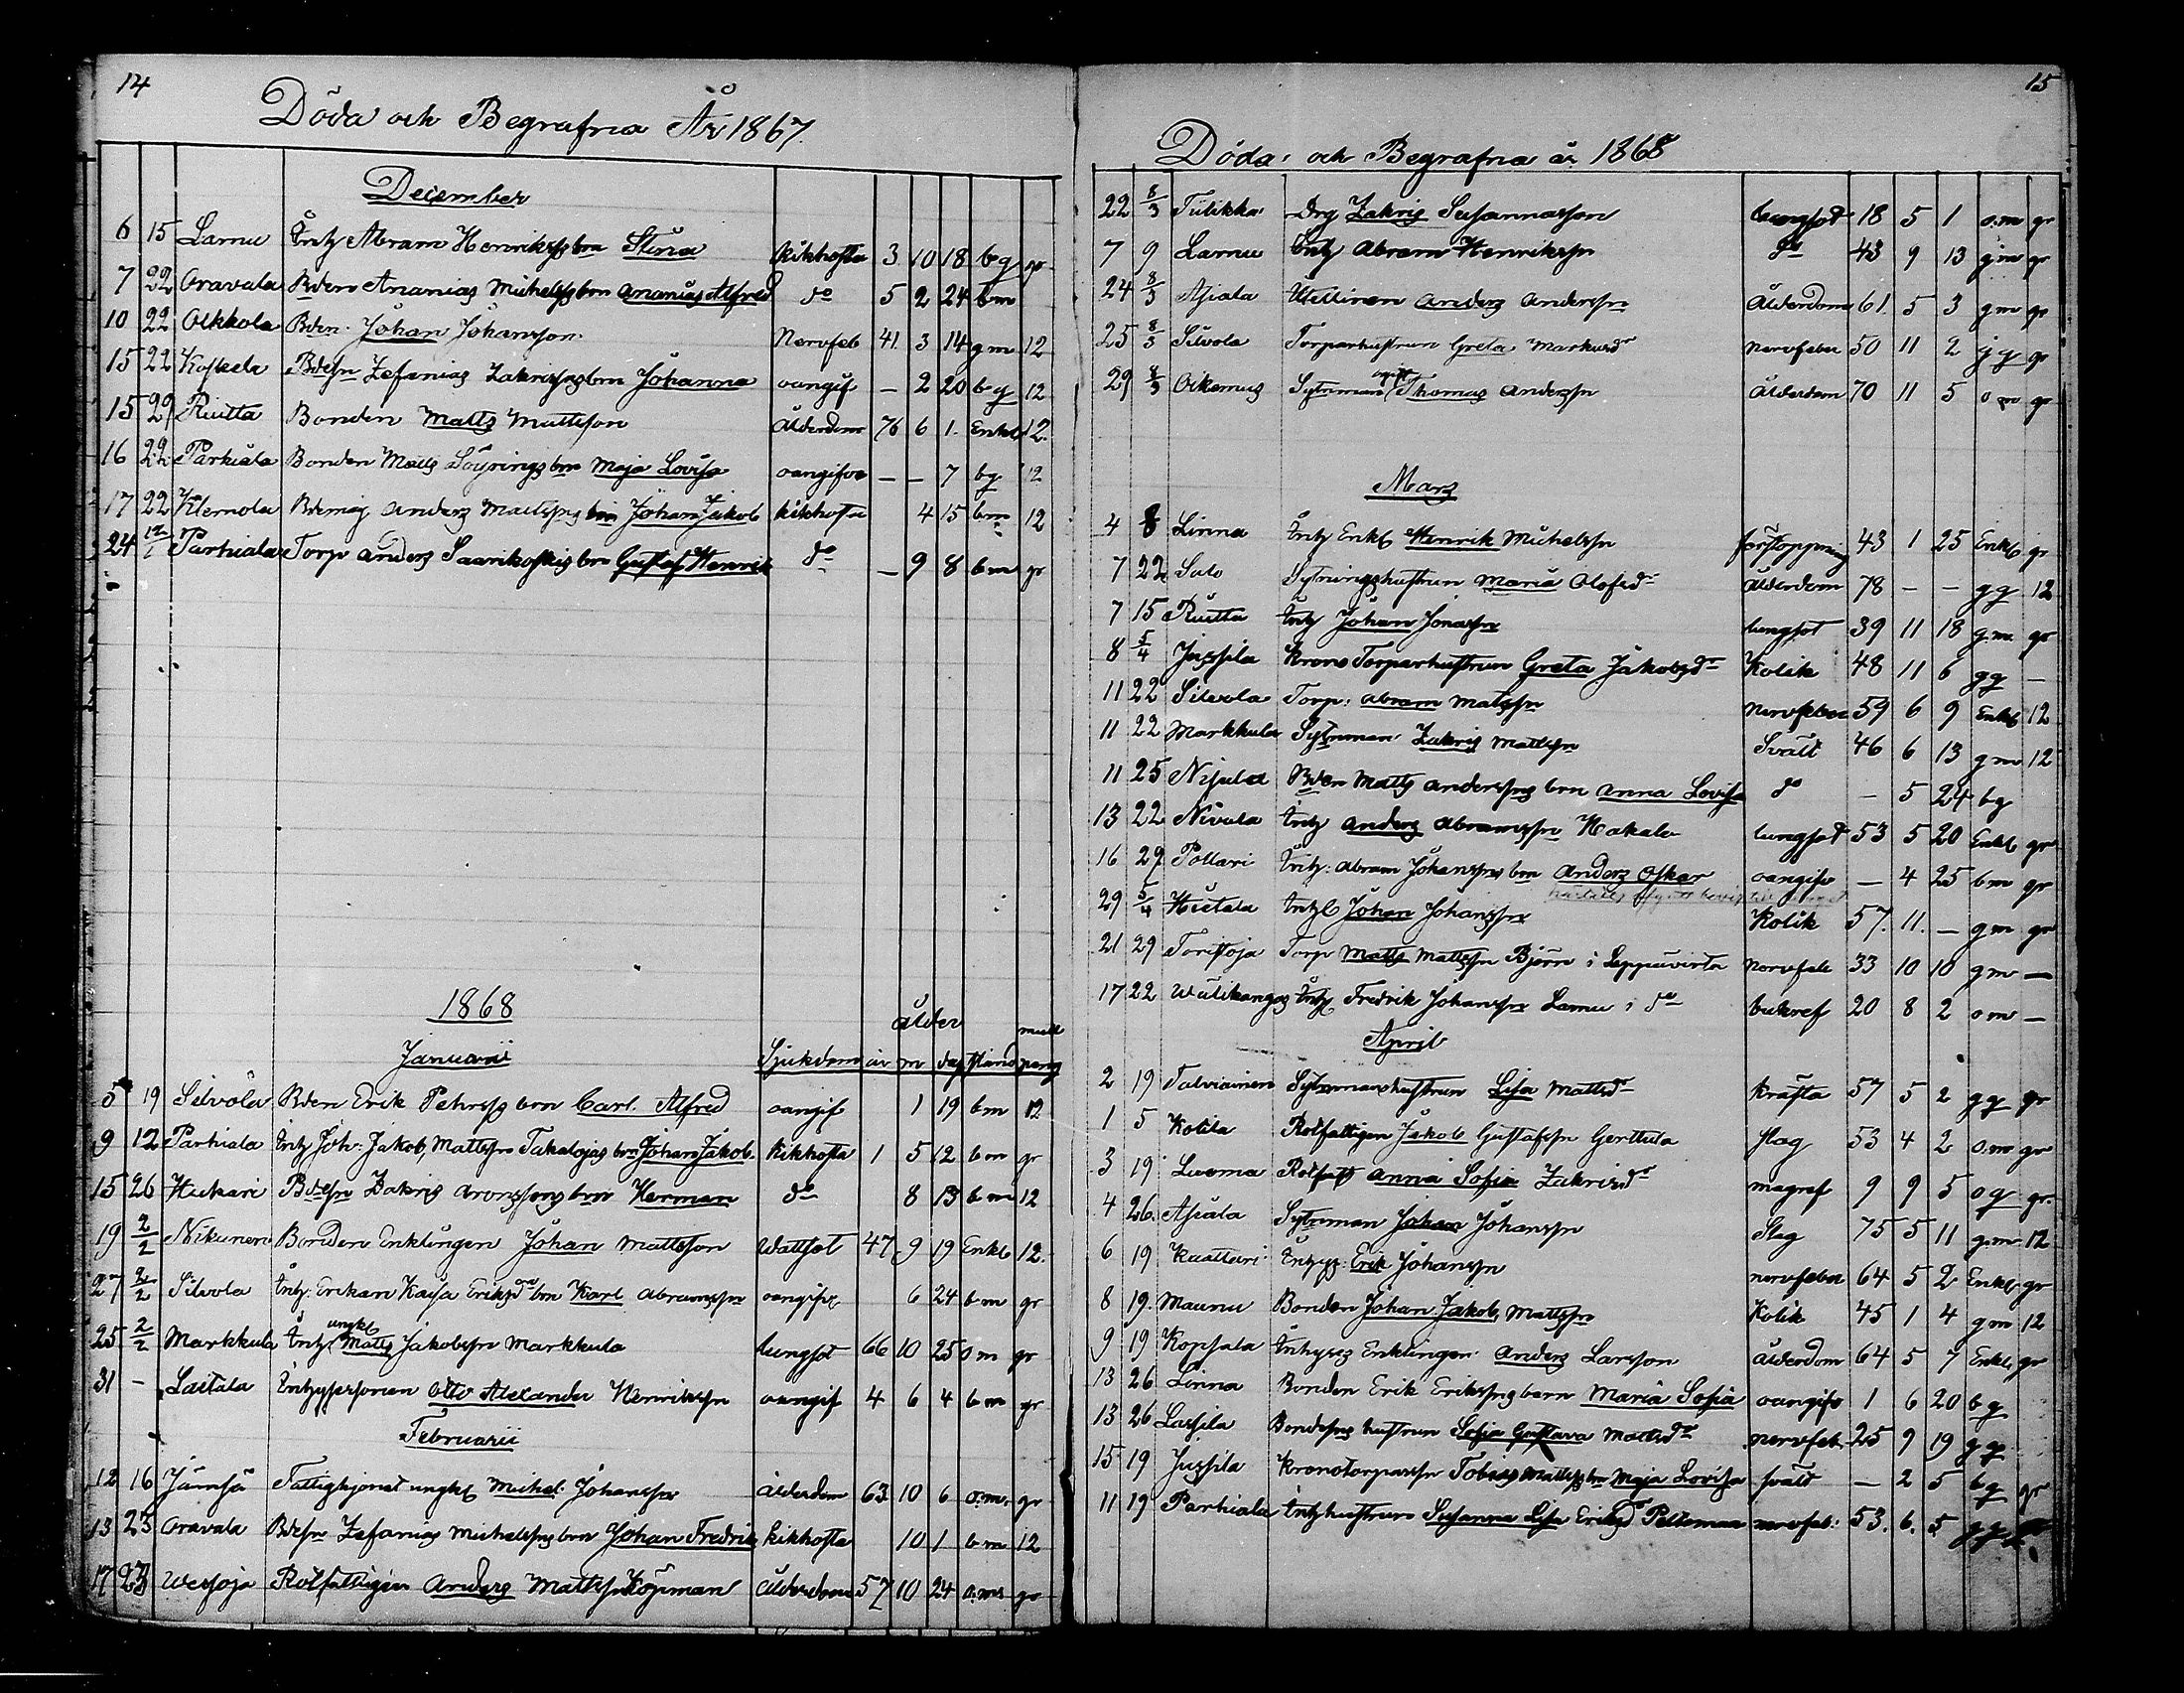 14
Döda och Begrafna År 1867.
December
6 15 Lamu Inhy Abram Henrikss bn Stina kikhosta 3 10 18 bg gr
7 22 Oravala Bden Ananias Michelss bn Ananias Alfred do 5 2 24 bm
10 22 Olkkola Bdn Johan Johansson Nervfeb 41 3 14 gm 12
15 22 Koskela Bdesn Zefanias Zakrissons bn Johanna oangif – 2 20 bg 12
15 29 Ruitta Bonden Matts Mattsson Ålderdom 76 6 1 Enkl 12
16 22 Parhiala Bonden Matts bn Maja Lovisa oangifve – – 7 bg 12
17 22 Bdemåg Anders Mattssons bn Johan Jakob kikhosta 4 15 bm 12
24 Parhiala Torp Anders Saarikoskis bn Gustaf Henrik do – 9 8 bm gr
1868
ålder mull
Januarii Sjukdom år m dag stånd peng
5 19 Silvola Bden Erik Petrss bn Carl Alfred oangif 1 19 bm 12
9 12 Parhiala Inhy Joh: Jakob, Mattssn Takalojas bn Johan Jakob kikhosta 1 5 12 bm gr
15 26 Hukari Bdesn Zakris Aronssons bn Herman do 8 13 bm 12
19 2/2 Nikunen Bonden Enklingen Johan Mattsson Wattsot 47 9 19 Enkl 12
27 2/2 Silvola Inhy: Enkan Kajsa Eriksdr bn Karl Abramssn oangifv 6 24 bm gr
25 2/2 Markkula Inhy ungkl Matts Jakobssn Markkula lungsot 66 10 25 om gr
31 – Laitala Inhyspersonen Otto Alexander Henrikssn oangif 4 6 4 bm gr
Februarii
12 16 Jämsä Fattighjonet ungkl Michel Johanssn ålderdom 63 10 6 o.m. gr
13 23 Oravala Bdesn Zefanias Michelss bn Johan Fredrik kikhosta 10 1 bm 12
17 23 Wesioja Rotfattigen Anders Mattssn Köyman ålderdom 57 10 24 o.m. gr
15
Döda och Begrafna år 1868
22 8/3 Tulikka Drg Zakris Susannasson lungsot 18 5 1 o.m gr
7 9 Lamu Inhy Abram Henrikssn do 43 9 13 gm gr
24 8/3 Asiala Anders Anderssn Ålderdom 61 5 3 gm gr
25 8/3 Silvola Torparhustrun Greta Markusdr nervfeber 50 11 2 gg gr
29 8/3 Oikemus Sytnman ogift Thomas Anderssn Ålderdom 70 11 5 om gr
Mars
4 8 Linna Inhy Enkl Henrik Michelssn förstoppning 43 1 25 Enkl gr
7 22 Salo Sytningshustrun Maria Olofsdr ålderdom 78 – – gg 12
7 15 Ruitta Inhy Johan Jonassn lungsot 39 11 18 gm gr
8 5/4 Jussila Krono Torparhustrun Greta Jakobsdr Kolik 48 11 6 gg –
11 22 Silvola Torp: Abram Matssn nervfeber 59 6 9 Enkl 12
11 22 Markkula Sytnman Zakris Mattssn Svält 46 6 13 gm 12
11 25 Nisula Bden Matts Anderssons bn Anna Lovisa do – 5 24 bg
13 22 Nivala Inhy Anders Abramssn Hakala lungsot 53 5 20 Enkl gr
16 29 Pollari Inhy: Abram Johanssns bn Anders Oskar oangifv – 4 25 bm gr
29 5/4 Hietala Inhyl Johan Johanssn Kolik 57. 11. – gm gr
21 29 Toristoja Torp Matts Mattssn Björn i Leppävirta nervfeb 33 10 10 gm –
17 22 Wulikangas Inhy Fredrik Johanssn Lamu i do bukref 20 8 2 om –
April
2 19 Talviainen Sytnmanshustrun Lisa Mattsdr kräfta 57 5 2 gg gr
1 5 Kotila Rotfattigen Jakob Gustafssn Gerttula slag 53 4 2 om gr
3 19 Luoma Rotfatt Anna Sofia Zakrisdr magref 9 9 5 og gr.
4 26. Asiala Sytnman Johan Johanssn Slag 75 5 11 g.m. 12
6 19 Kuattari Inhygs: Erik Johanssn nervfeber 64 5 2 Enkl gr
8 19. Maunu Bonden Johan Jakob, Mattssn Kolik 45 1 4 gm 12
9 19 Kopsala Inhyses Enklingen Anders Larsson ålderdom 64 5 7 Enkl gr
13 26 Linna Bonden Erik Erikssons barn Maria Sofia oangifv 1 6 20 bg
13 26 Lassila Bondesns hustrun Sofia Gustava Mattsdr nervfeb 25 9 19 gg
15 19 Jussila Kronotorparesn Tobias Mattss bn Maja Lovisa svält – 2 5 bg gr
11 19 Parhiala Inhyshustrun Susanna Lisa Eriksd Peltomaa nervfeb: 53. 6. 5 gg